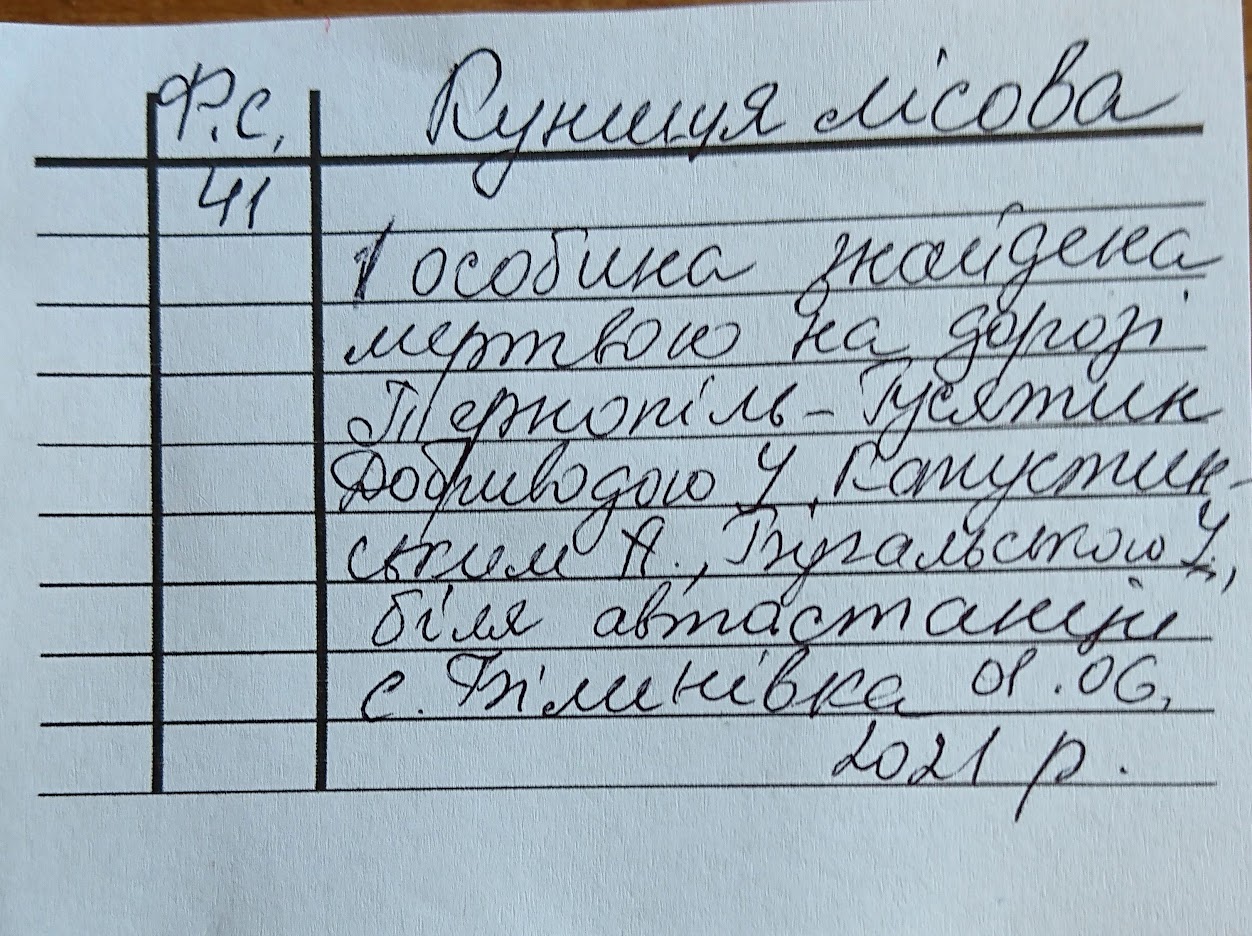 Ф.с. Куниця лісова
41
1 особина знайдена
мертвою на дорозі
Тернопіль – Гусятин
Добриводою У, Капустин-
ським А.,
біля автостанції
с. Білинівка 01.06.
2021 р.